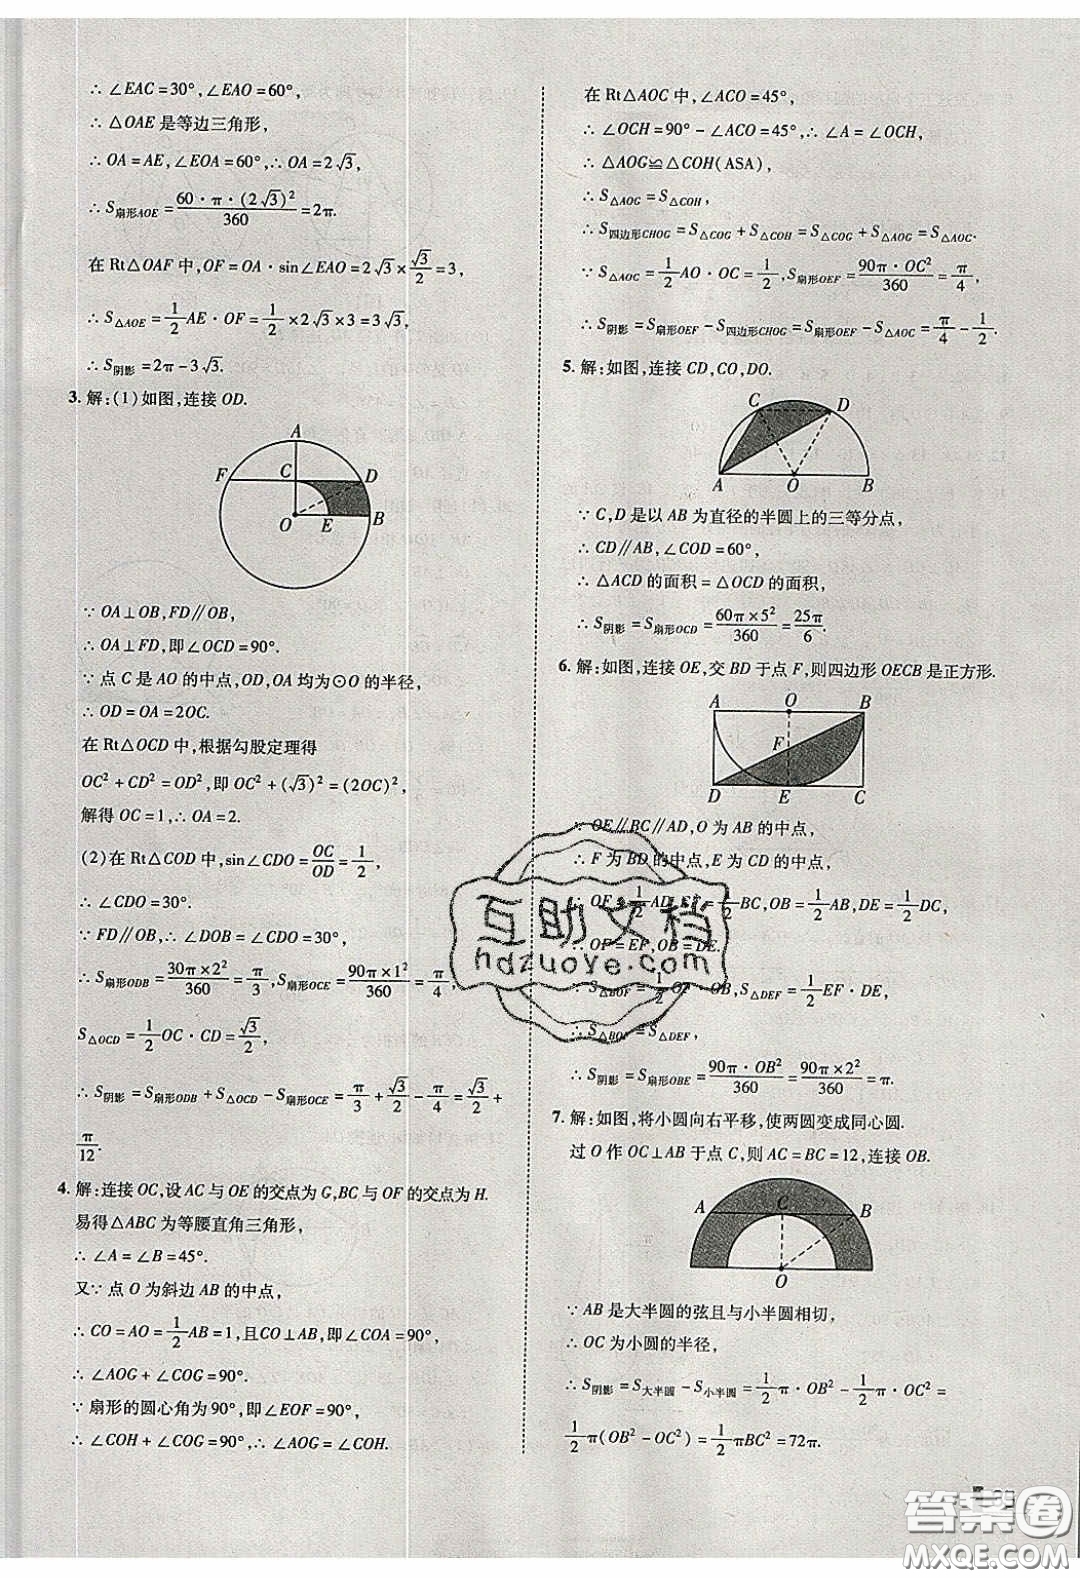 ∴ ∠EAC=30°,∠EAO=60°,
∴ △OAE 是等边三角形,
∴ OA=AE,∠EOA=60°,∴ OA=2√3,
∴ S扇形AOE=60·π·(2√3)²/360=2π.
在 Rt△OAF 中,OF=OA·sin∠EAO=2√3×√3/2=3,
∴ S△AOE=1/2AE·OF=1/2×2√3×3=3√3.
∴ S阴影=2π-3√3.
3. 解:(1)如图,连接 OD.
A
F C D
O E B
∵ OA⊥OB,FD∥OB,
∴ OA⊥FD,即∠OCD=90°.
∵ 点 C 是 AO 的中点,OD,OA 均为⊙O 的半径,
∴ OD=OA=2OC.
在 Rt△OCD 中,根据勾股定理得
OC²+CD²=OD²,即 OC²+(√3)²=(2OC)²,
解得 OC=1,∴ OA=2.
(2)在 Rt△COD 中,sin∠CDO=OC/OD=1/2,
∴ ∠CDO=30°.
∵ FD∥OB,∴ ∠DOB=∠CDO=30°,
∴ S扇形ODB=30π×2²/360=π/3,S扇形OCE=90π×1²/360=π/4,
S△OCD=1/2OC·CD=√3/2,
∴ S阴影=S扇形ODB+S△OCD-S扇形OCE=π/3+√3/2-π/4=√3/2+
π/12.
4. 解:连接 OC,设 AC 与 OE 的交点为 G,BC 与 OF 的交点为 H.
易得△ABC 为等腰直角三角形,
∴ ∠A=∠B=45°.
又∵ 点 O 为斜边 AB 的中点,
∴ CO=AO=1/2AB=1,且CO⊥AB,即∠COA=90°,
∴ ∠AOG+∠COG=90°.
∵ 扇形的圆心角为 90°,即∠EOF=90°,
∴ ∠COH+∠COG=90°,∴ ∠AOG=∠COH.
在 Rt△AOC 中,∠ACO=45°,
∴ ∠OCH=90°-∠ACO=45°,∴ ∠A=∠OCH,
∴ △AOG≌△COH(ASA),
∴ S△AOG=S△COH,
∴ S四边形CHOG=S△COG+S△COH=S△COG+S△AOG=S△AOC.
∵ S△AOC=1/2AO·OC=1/2,S扇形OEF=90π·OC²/360=π/4,
∴ S阴影=S扇形OEF-S四边形CHOG=S扇形OEF-S△AOC=π/4-1/2.
5. 解:如图,连接 CD,CO,DO.
C D
A O B
∵ C,D 是以 AB 为直径的半圆上的三等分点,
∴ CD∥AB,∠COD=60°,
∴ △ACD 的面积=△OCD 的面积,
∴ S阴影=S扇形OCD=60π×5²/360=25π/6.
6. 解:如图,连接 OE,交 BD 于点 F,则四边形 OECB 是正方形.
A O B
F
D E C
∵ OE∥BC∥AD,O 为 AB 的中点,
∴ F 为 BD 的中点,E 为 CD 的中点,
∴ OF=1/2AD,EF=1/2BC,OB=1/2AB,DE=1/2DC,
∴ OF=EF,OB=DE.
∵ S△BOF=1/2OF·OB,S△DEF=1/2EF·DE,
∴ S△BOF=S△DEF,
∴ S阴影=S扇形OBE=90π·OB²/360=90π×2²/360=π.
7. 解:如图,将小圆向右平移,使两圆变成同心圆.
过 O 作 OC⊥AB 于点 C,则 AC=BC=12,连接 OB.
A C B
O
∵ AB 是大半圆的弦且与小半圆相切,
∴ OC 为小圆的半径,
∴ S阴影=S大半圆-S小半圆=1/2π·OB²-1/2π·OC²=
1/2π(OB²-OC²)=1/2πBC²=72π.
互助文档
hdzuoye.com
答案圈
MXQE.COM